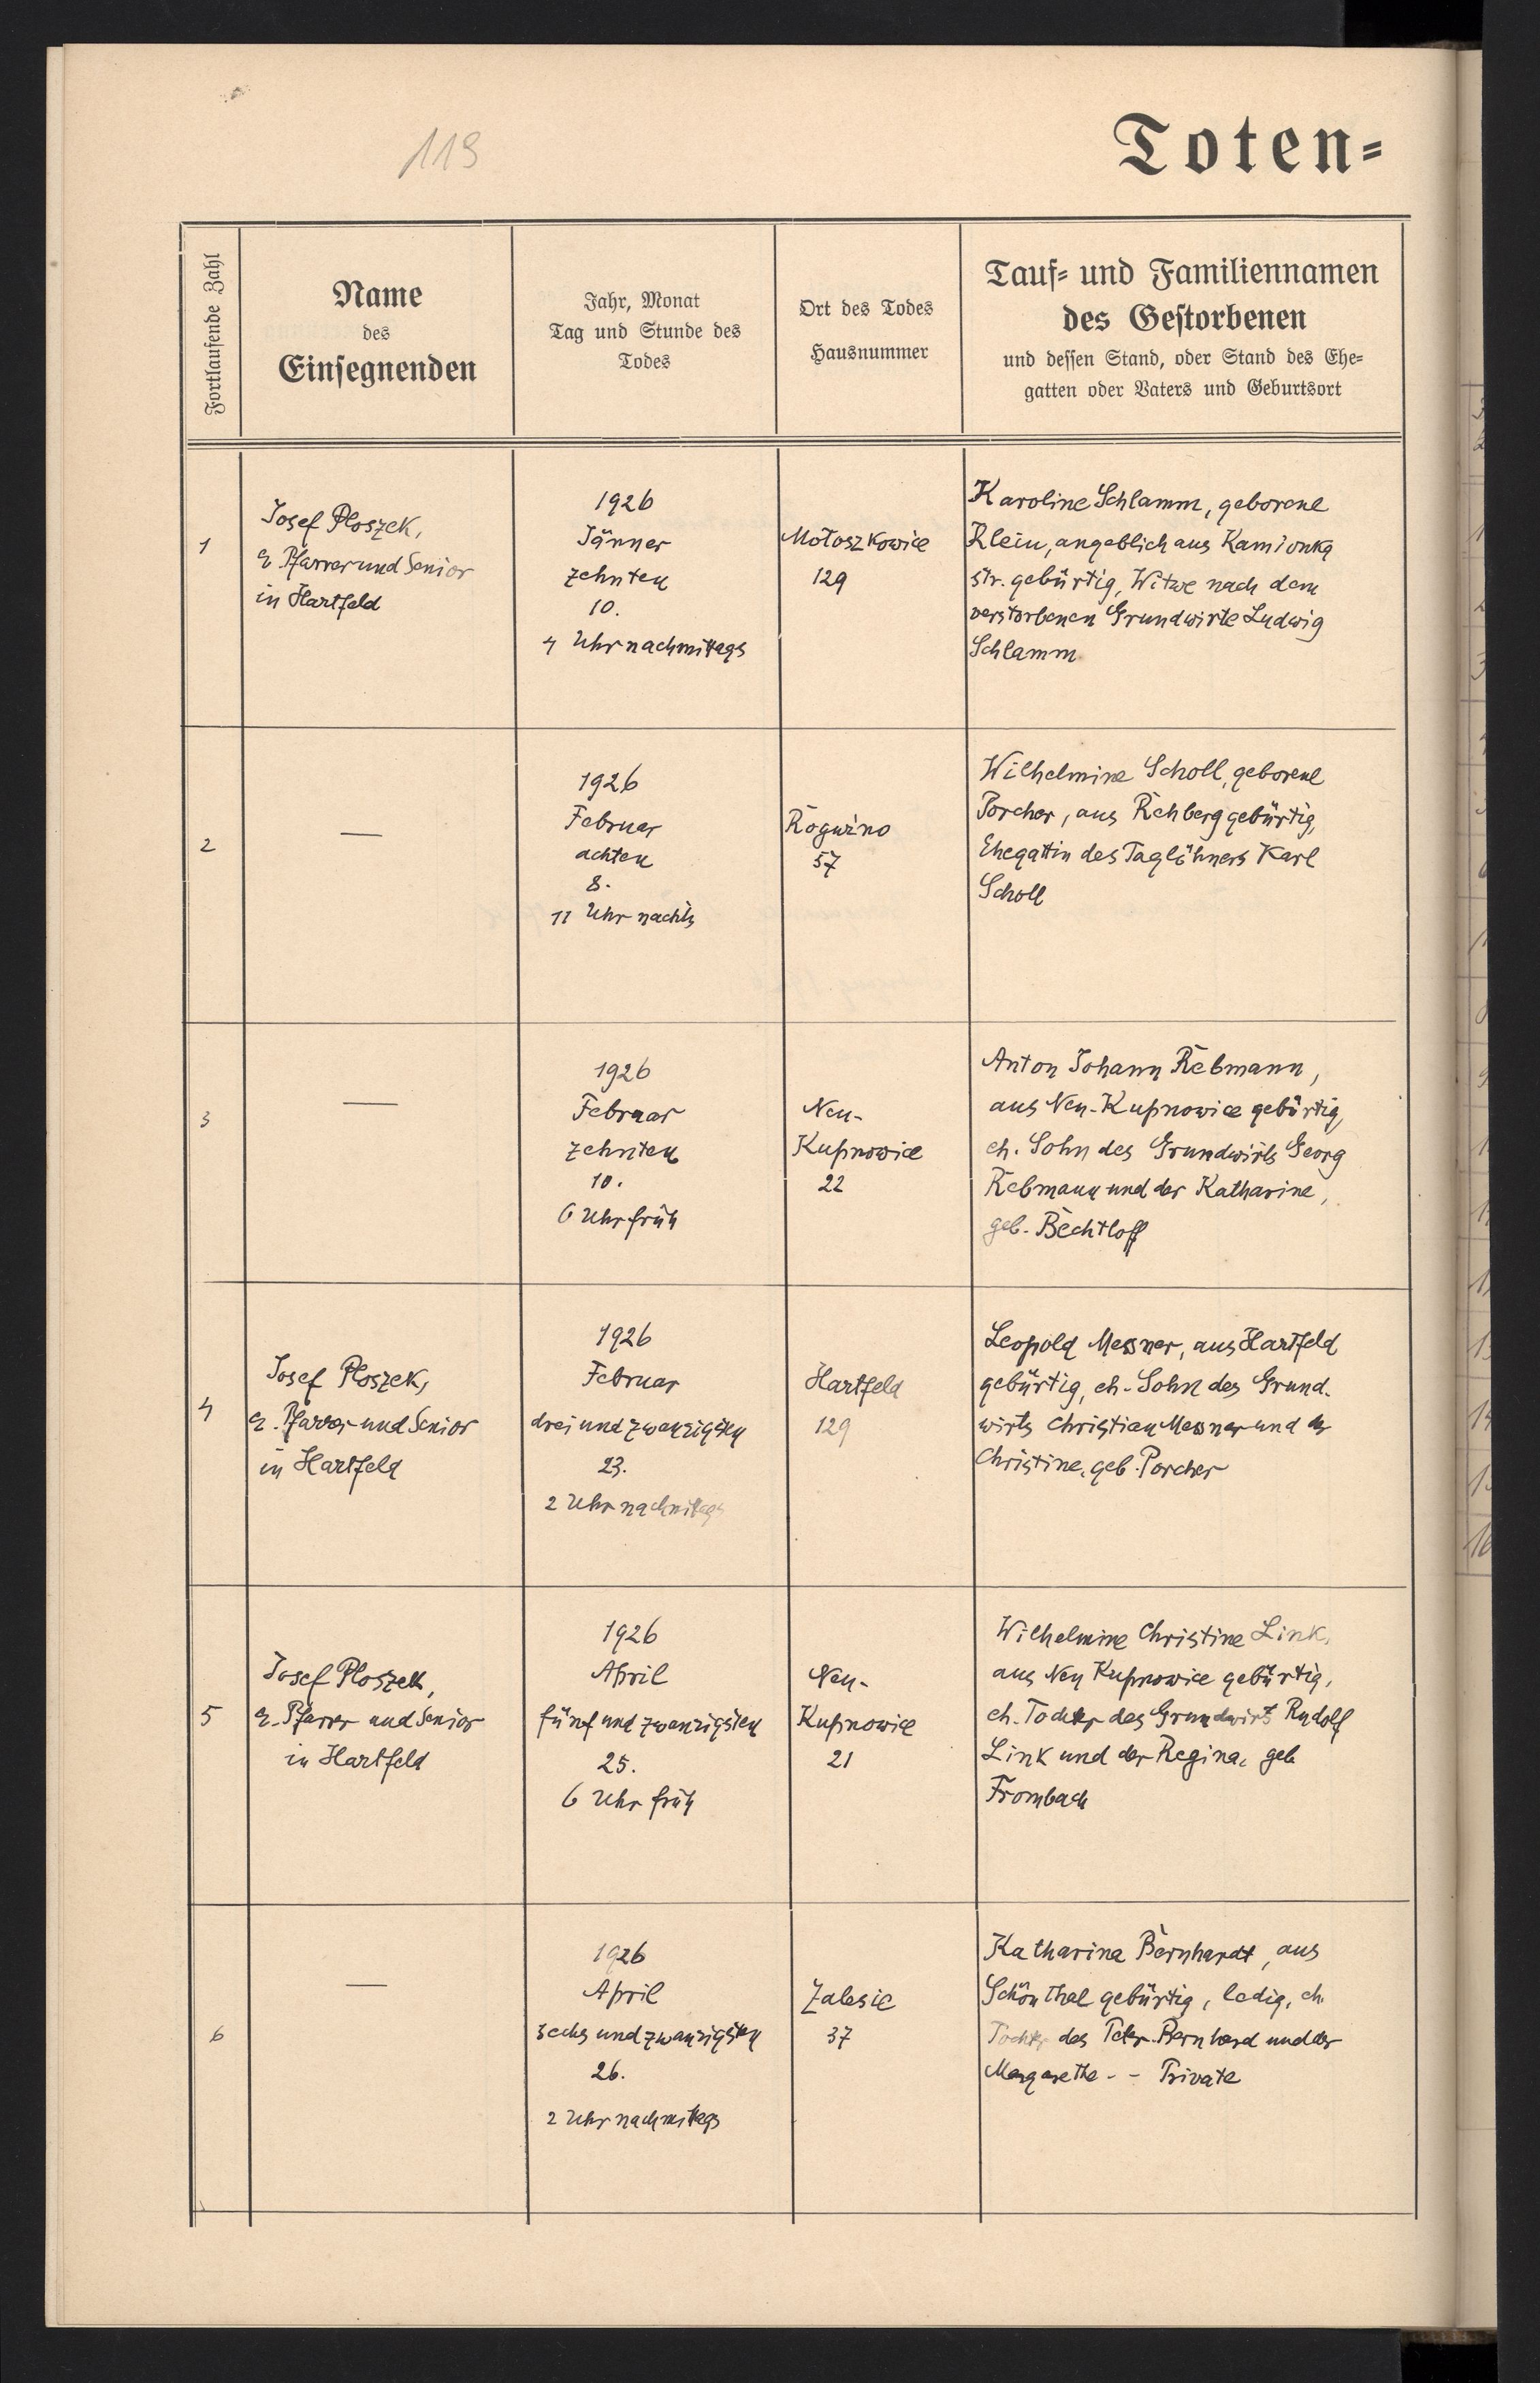 119
Toten-
Fortlaufende Zahl
Name
des
Einsegnenden
Jahr, Monat
Tag und Stunde des
Todes
Ort des Todes
Hausnummer
Tauf- und Familiennamen
des Gestorbenen
und dessen Stand, oder Stand des Ehe-
gatten oder Vaters und Geburtsort
1
Josef Ploszek,
e. Pfarrer und Senior
in Hartfeld
1926
Jänner
zehnten
10.
4 Uhr nachmittags
Mołoszkowice
129
Karoline Schlamm, geborene
Klein, angeblich aus Kamionka
str. gebürtig, Witwe nach dem
verstorbenen Grundwirte Ludwig
Schlamm
2
—
1926
Februar
achten
8.
11 Uhr nachts
Rogużno
57
Wilhelmine Scholl, geborene
Porcher, aus Rehberg gebürtig,
Ehegattin des Taglöhners Karl
Scholl
3
—
1926
Februar
zehnten
10.
6 Uhr früh
Neu-
Kupnowice
22
Anton Johann Rebmann,
aus Neu-Kupnowice gebürtig,
eh. Sohn des Grundwirts Georg
Rebmann und der Katharine,
geb. Bechtloff
4
Josef Ploszek,
e. Pfarrer und Senior
in Hartfeld
1926
Februar
dreiundzwanzigsten
23.
2 Uhr nachmittags
Hartfeld
129
Leopold Messner, aus Hartfeld
gebürtig, eh. Sohn des Grund-
wirts Christian Messner und der
Christine, geb. Porcher
5
Josef Ploszek,
e. Pfarrer und Senior
in Hartfeld
1926
April
fünfundzwanzigsten
25.
6 Uhr früh
Neu-
Kupnowice
21
Wilhelmine Christine Link,
aus Neu Kupnowice gebürtig,
eh. Tochter des Grundwirts Rudolf
Link und der Regina, geb
Frombach
6
—
1926
April
sechsundzwanzigsten
26.
2 Uhr nachmittags
Zalesie
37
Katharina Bernhardt, aus
Schönthal gebürtig, ledig, eh.
Tochter des Peter Bernhard und der
Margarethe - - Private